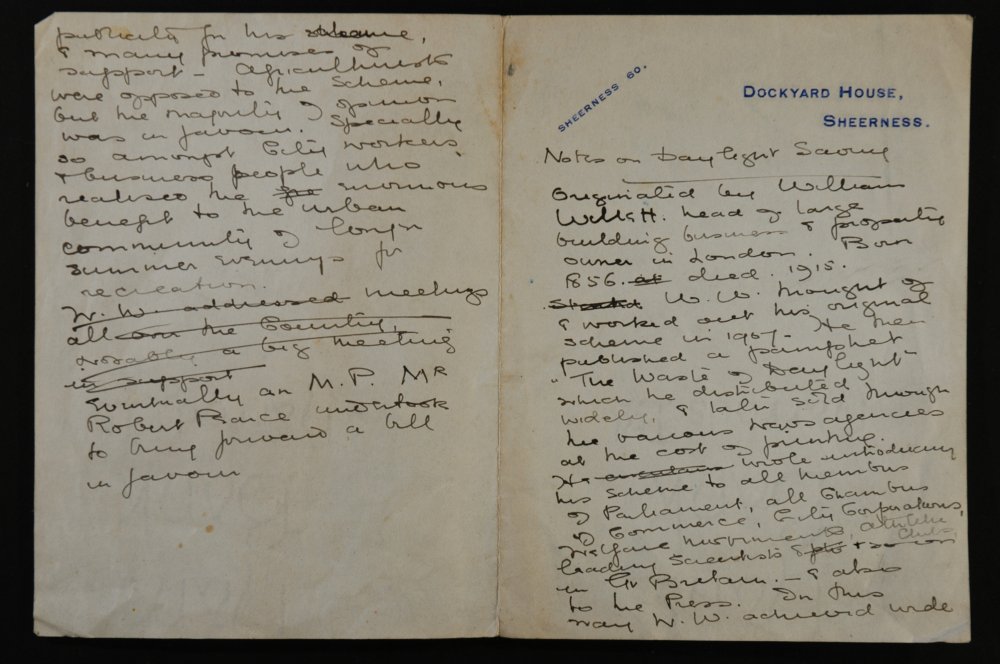 SHEERNESS 60.
DOCKYARD HOUSE,
SHEERNESS.
Notes on Daylight Saving
Originated by William
Willett. head of large
building business & property
owner in London. Born
1856. at died. 1915.
Started W. W. thought of
& worked out his original
scheme in 1907. He then
published a pamphlet
"The Waste of Daylight"
which he distributed
widely, & later sold through
the various news agencies
at the cost of printing.
He wrote introducing
his scheme to all members
of Parliament, all Chambers
of Commerce, City Corporations,
Welfare movements, athletic
Clubs,
leading Scientists & so on
in Gt Britain. - & also
to the Press. In this
way W. W. achieved wide
publicity for his scheme,
& many promises of
support - Agriculturists
were opposed to the Scheme,
but the majority of opinion
was in favour. Specially
so amongst City workers
& business people who
realised the enormous
benefit to the urban
community of longer
summer evenings for
recreation.
W. W. addressed meetings
all over the Country,
notably a big meeting
in support
Eventually an M.P. Mr
Robert Pearce undertook
to bring forward a bill
in favour